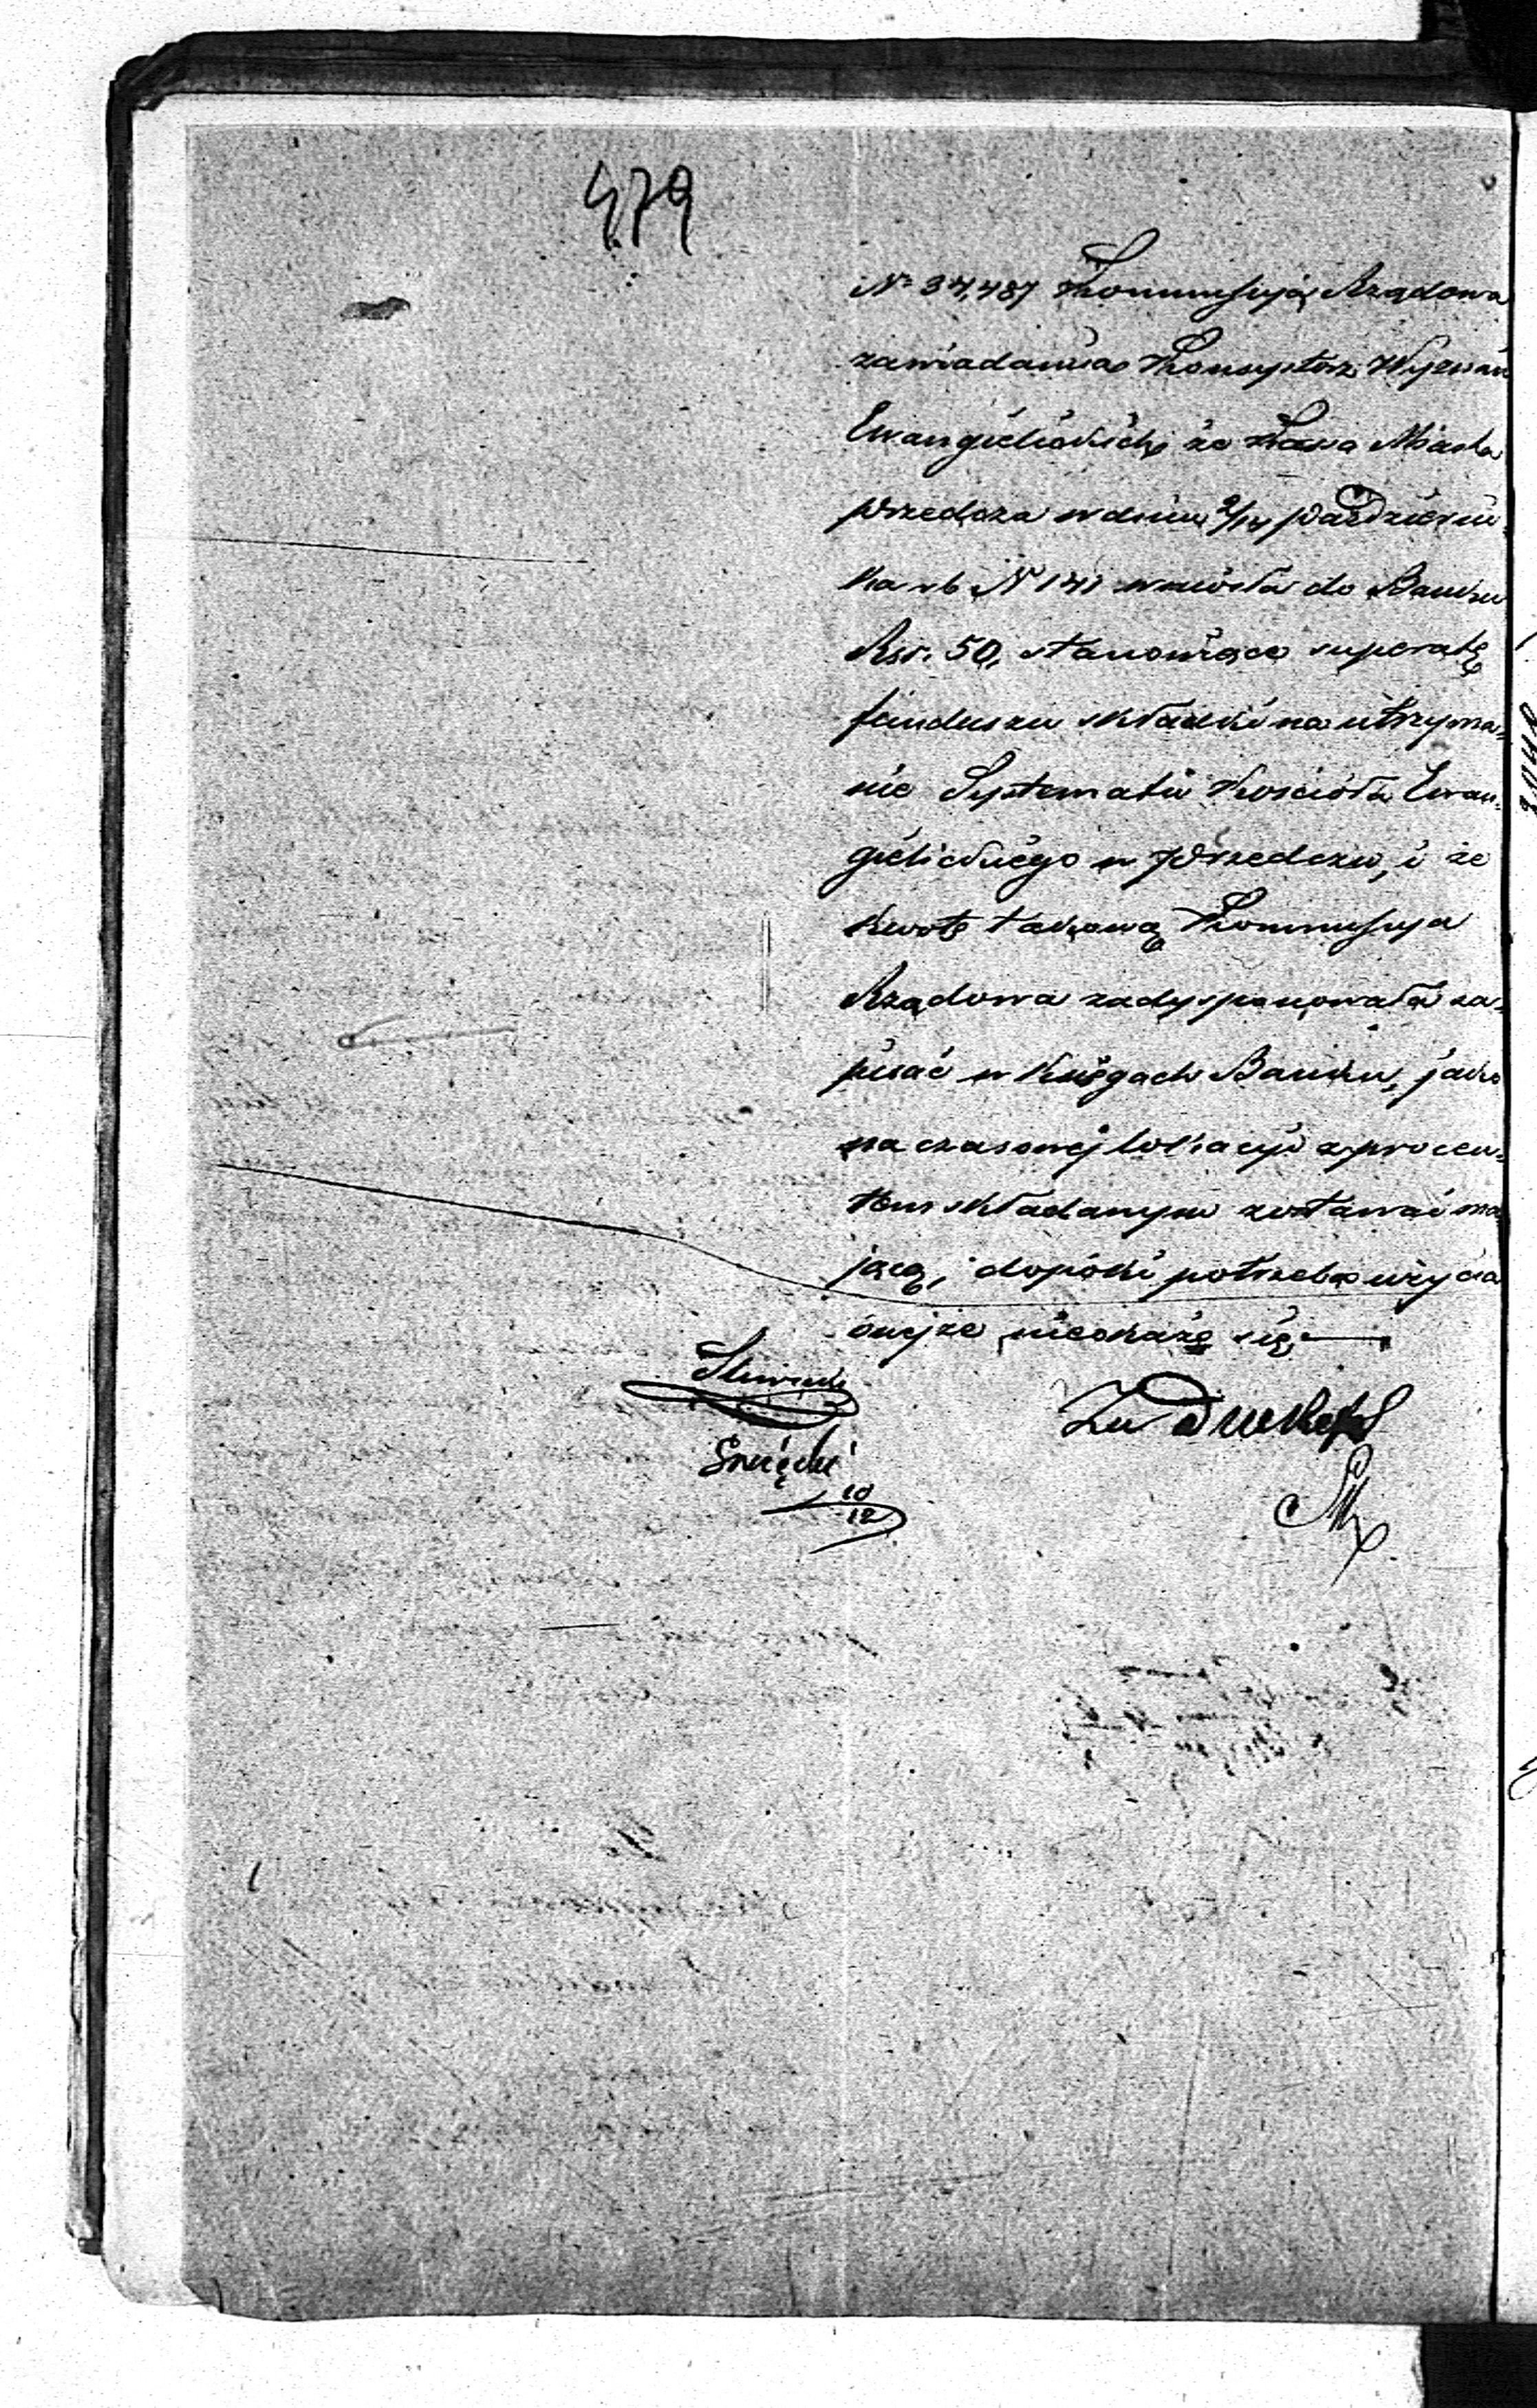 479
№ 34,487 Kommissyia Rządowa
zawiadamia Konsystorz Wyznań
Ewangielickich, że Kassa Miasta
Przedcza w dniu 2/14 Październi-
ka rb № 141 wniosła do Banku
Rsr. 50, stanowiące superatę
funduszu składki na utrzyma-
nie Systematu Kościoła Ewan-
gielickiego w Przedczu, i że
kwotę takową Kommissyia
Rządowa zadysponowała za-
pisać w księgach Banku, jako
na czasowej lokacyi z procen-
tem składanym zostawać ma-
jącą, dopóki potrzeba użycia
onejże nieokaże się.
Śniędki
10
12